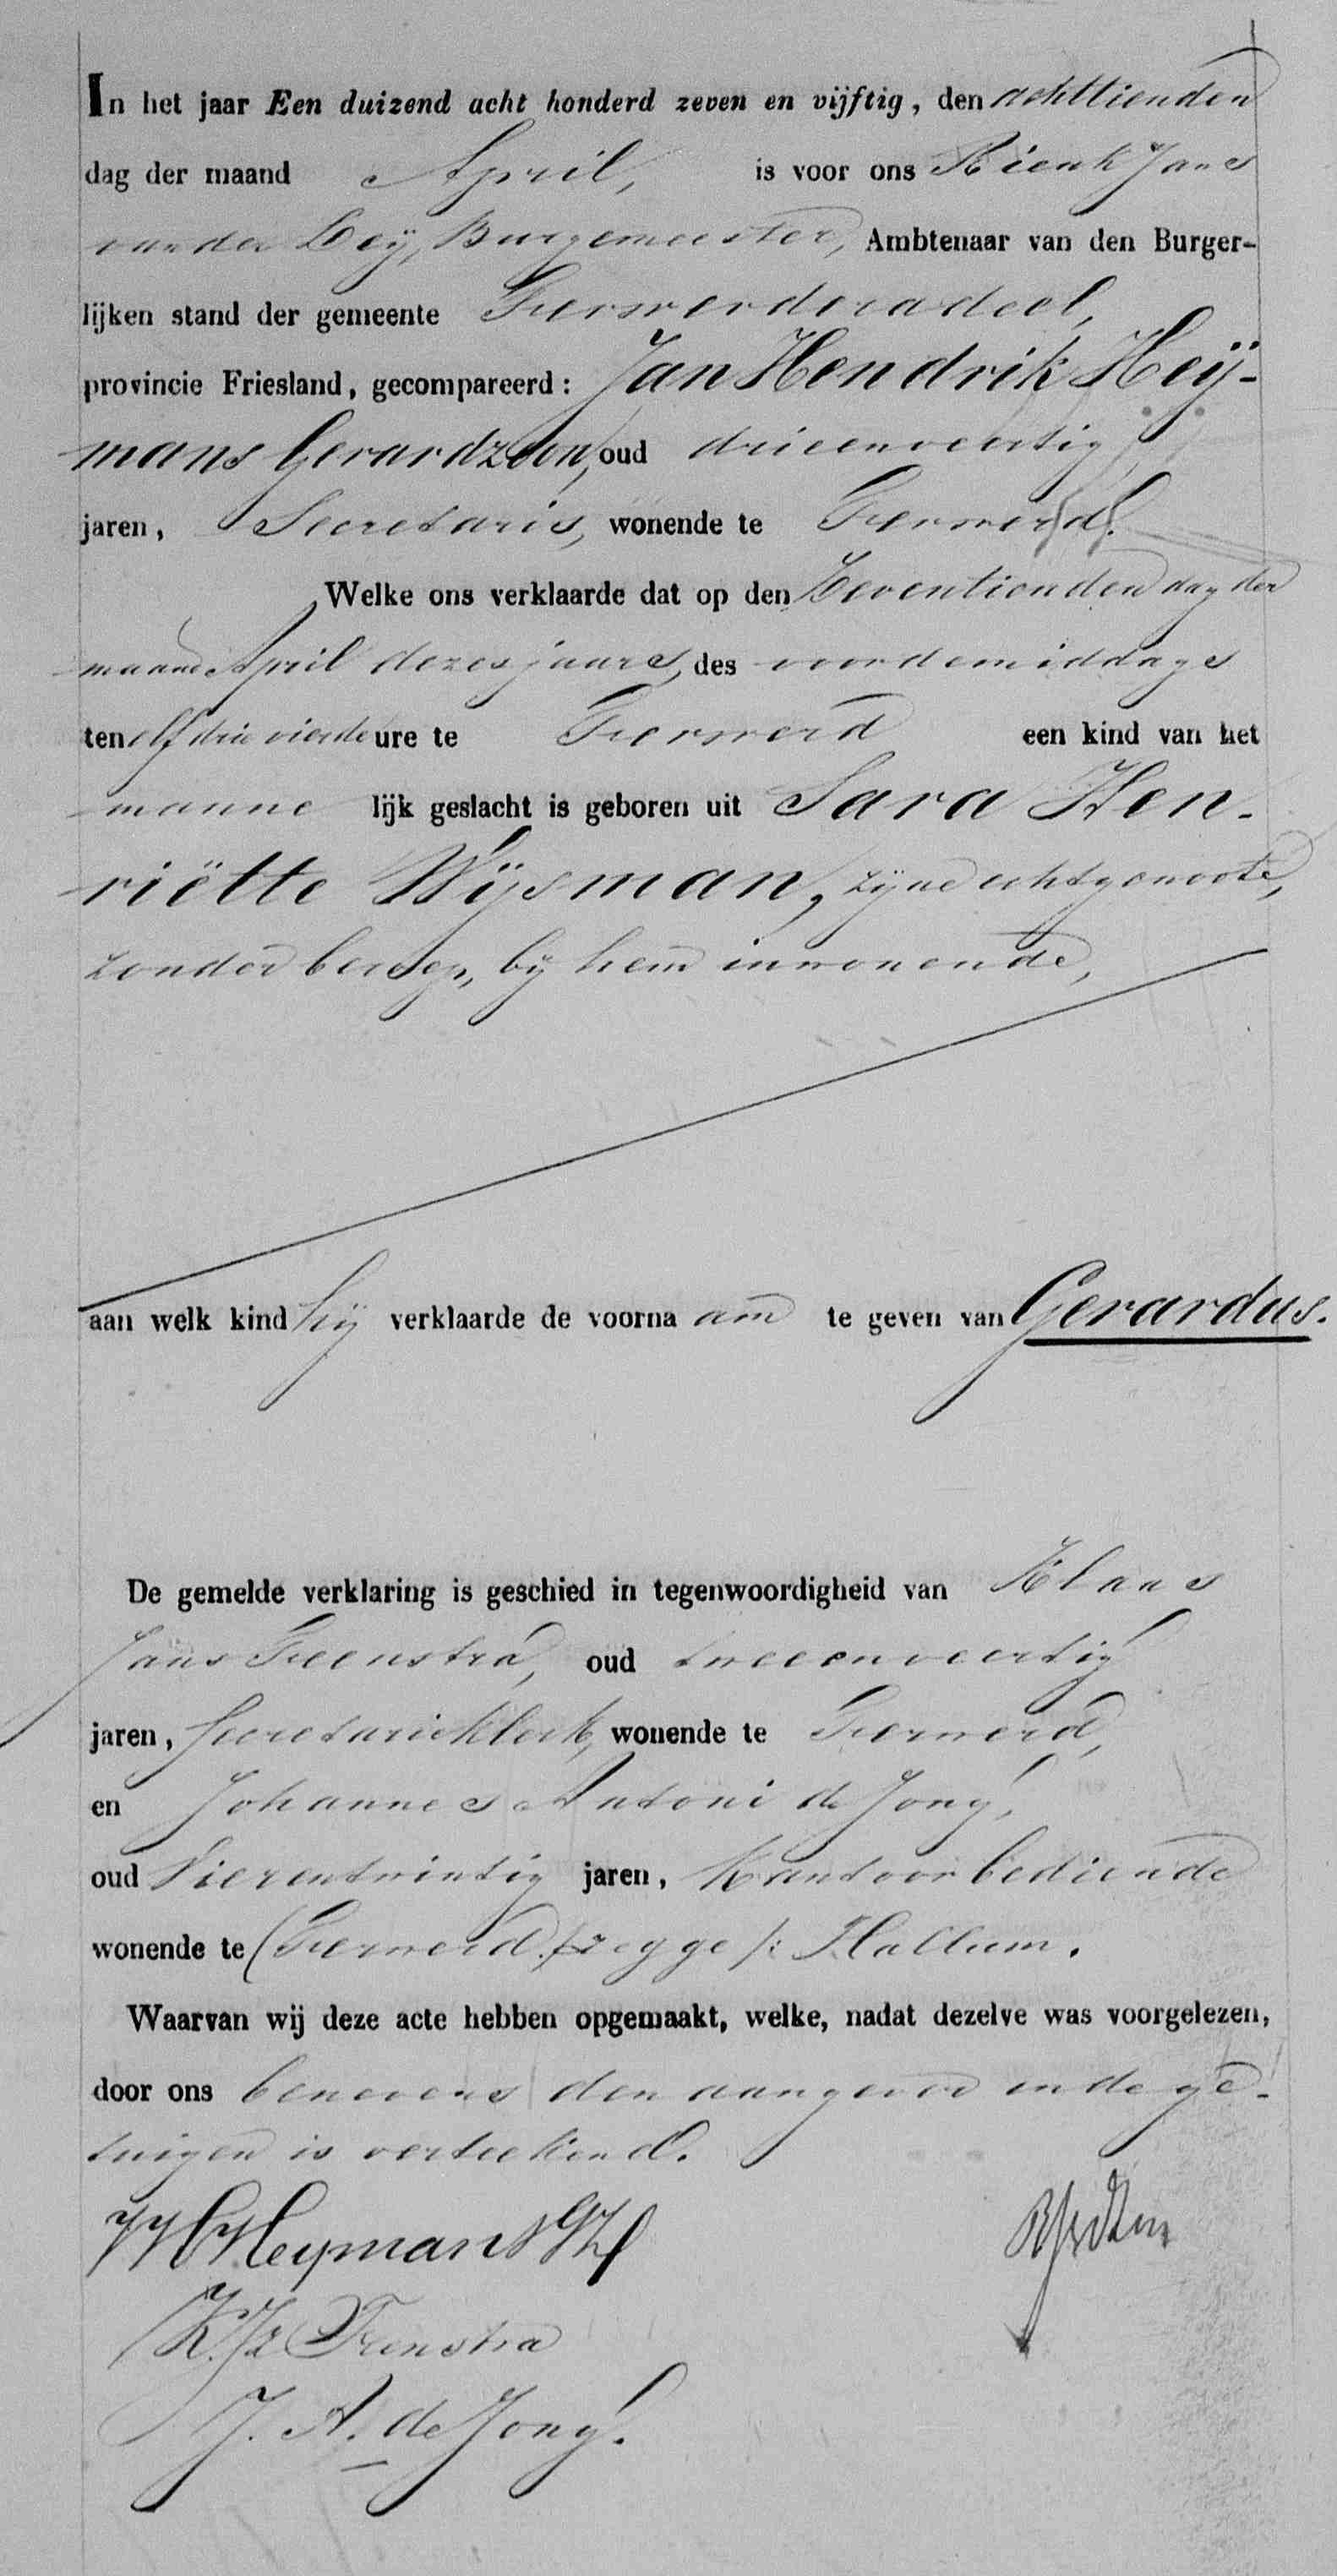 In het jaar Een duizend acht honderd zeven en vijftig, den achttienden
dag der maand April, is voor ons Rienk Jans
van der Leÿ, Burgemeester, Ambtenaar van den Burger-
lijken stand der gemeente Ferwerderadeel,
provincie Friesland, gecompareerd: Jan Hendrik Heÿ-
mans Gerardzoon, oud drieenveertig
jaren, Secretaris, wonende te Ferwerd.
Welke ons verklaarde dat op den Zeventienden dag der
maand April dezes jaars, des voordemiddags
ten elf drie vierde ure te Ferwerd een kind van het
manne lijk geslacht is geboren uit Sara Hen-
riëtte Wÿsman, zijne echtgenoote,
zonder beroep, bij hem inwonende,
aan welk kind hÿ verklaarde de voorna am te geven van Gerardus.
De gemelde verklaring is geschied in tegenwoordigheid van Klaas
Jans Feenstra, oud tweeenveertig
jaren, Secretarieklerk, wonende te Ferwerd,
en Johannes Antoni de Jong,
oud Vierentwintig jaren, Kantoorbediende
wonende te (Ferwerd /: zegge /: Hallum.
Waarvan wij deze acte hebben opgemaakt, welke, nadat dezelve was voorgelezen,
door ons benevens den aangever en de ge-
tuigen is verteekend.
JH Heymans GZ
K. Jz Feenstra
J. A. de Jong.